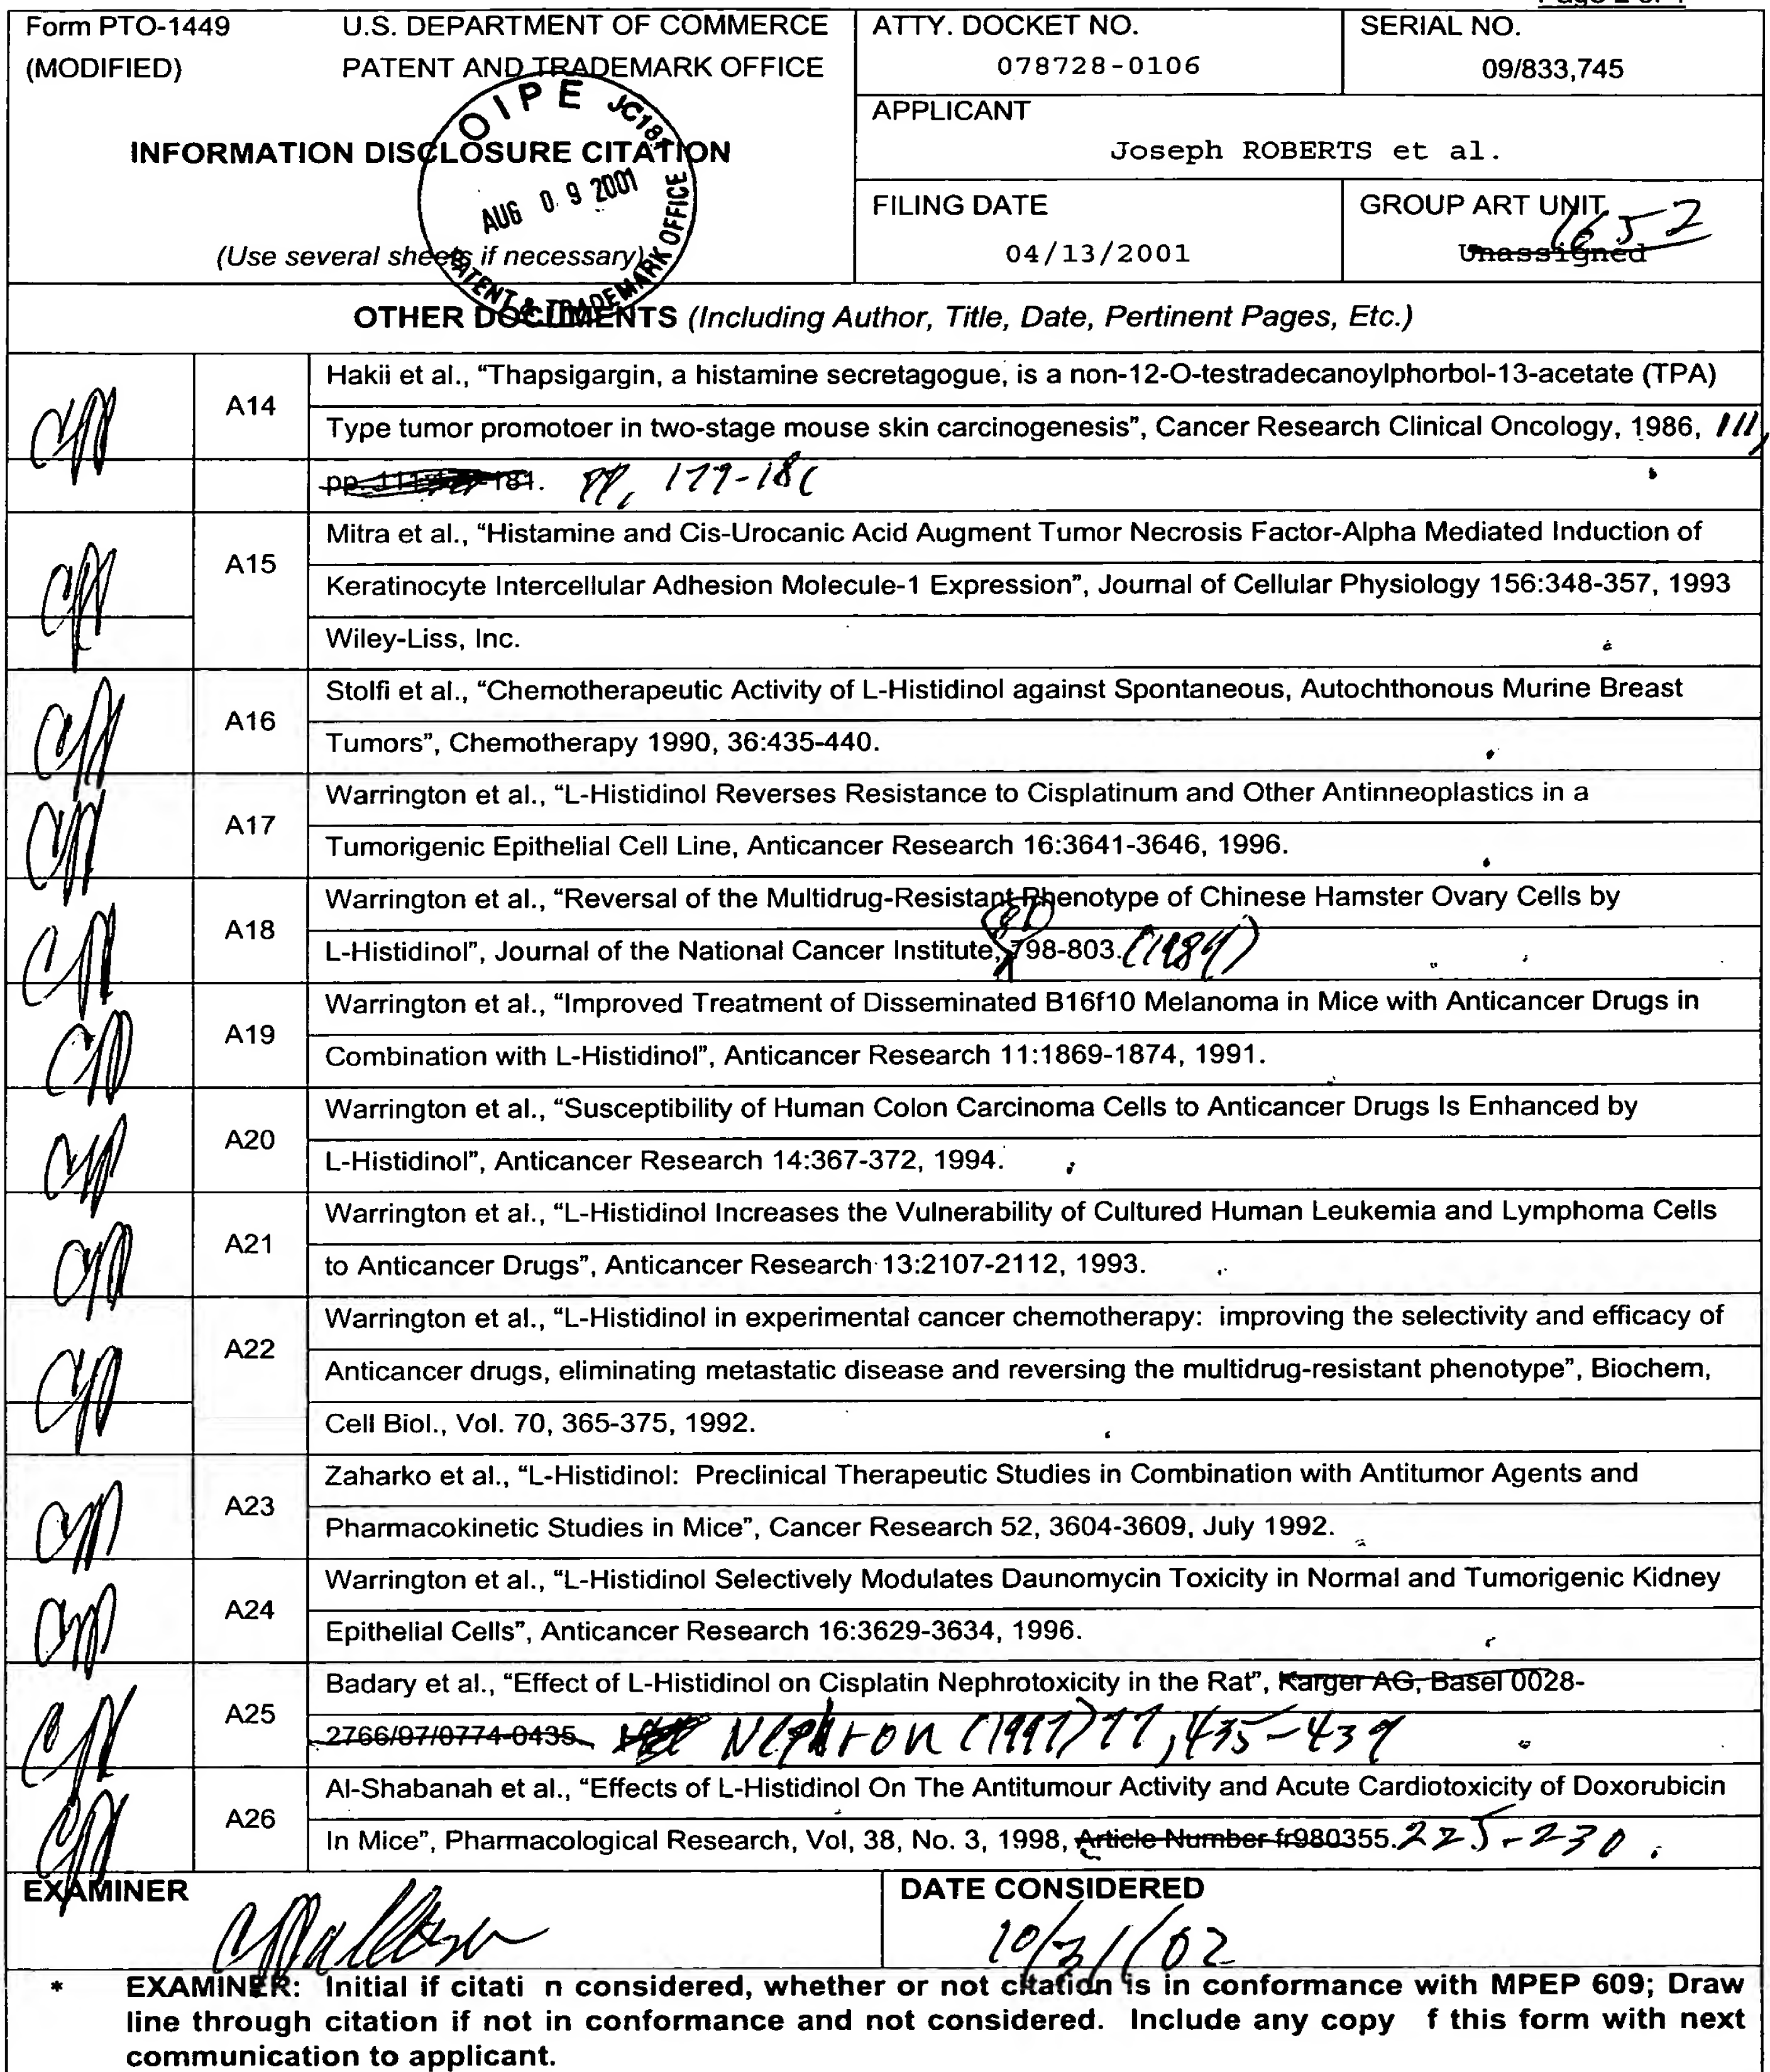 Form PTO-1449 U.S. DEPARTMENT OF COMMERCE
(MODIFIED) PATENT AND TRADEMARK OFFICE
ATTY. DOCKET NO.
078728-0106
SERIAL NO.
09/833,745
APPLICANT
Joseph ROBERTS et al.
INFORMATION DISCLOSURE CITATION
OIPE JC181
AUG 09 2001
PATENT & TRADEMARK OFFICE
(Use several sheets if necessary)
FILING DATE
04/13/2001
GROUP ART UNIT
1652
Unassigned
OTHER DOCUMENTS (Including Author, Title, Date, Pertinent Pages, Etc.)
A14
Hakii et al., “Thapsigargin, a histamine secretagogue, is a non-12-O-testradecanoylphorbol-13-acetate (TPA)
Type tumor promotoer in two-stage mouse skin carcinogenesis”, Cancer Research Clinical Oncology, 1986, 111,
pp. 181. pp, 177-181
A15
Mitra et al., “Histamine and Cis-Urocanic Acid Augment Tumor Necrosis Factor-Alpha Mediated Induction of
Keratinocyte Intercellular Adhesion Molecule-1 Expression”, Journal of Cellular Physiology 156:348-357, 1993
Wiley-Liss, Inc.
A16
Stolfi et al., “Chemotherapeutic Activity of L-Histidinol against Spontaneous, Autochthonous Murine Breast
Tumors”, Chemotherapy 1990, 36:435-440.
A17
Warrington et al., “L-Histidinol Reverses Resistance to Cisplatinum and Other Antinneoplastics in a
Tumorigenic Epithelial Cell Line, Anticancer Research 16:3641-3646, 1996.
A18
Warrington et al., “Reversal of the Multidrug-Resistant Phenotype of Chinese Hamster Ovary Cells by
L-Histidinol”, Journal of the National Cancer Institute, 81 798-803. (1989)
A19
Warrington et al., “Improved Treatment of Disseminated B16f10 Melanoma in Mice with Anticancer Drugs in
Combination with L-Histidinol”, Anticancer Research 11:1869-1874, 1991.
A20
Warrington et al., “Susceptibility of Human Colon Carcinoma Cells to Anticancer Drugs Is Enhanced by
L-Histidinol”, Anticancer Research 14:367-372, 1994.
A21
Warrington et al., “L-Histidinol Increases the Vulnerability of Cultured Human Leukemia and Lymphoma Cells
to Anticancer Drugs”, Anticancer Research 13:2107-2112, 1993.
A22
Warrington et al., “L-Histidinol in experimental cancer chemotherapy: improving the selectivity and efficacy of
Anticancer drugs, eliminating metastatic disease and reversing the multidrug-resistant phenotype”, Biochem,
Cell Biol., Vol. 70, 365-375, 1992.
A23
Zaharko et al., “L-Histidinol: Preclinical Therapeutic Studies in Combination with Antitumor Agents and
Pharmacokinetic Studies in Mice”, Cancer Research 52, 3604-3609, July 1992.
A24
Warrington et al., “L-Histidinol Selectively Modulates Daunomycin Toxicity in Normal and Tumorigenic Kidney
Epithelial Cells”, Anticancer Research 16:3629-3634, 1996.
A25
Badary et al., “Effect of L-Histidinol on Cisplatin Nephrotoxicity in the Rat”, Karger AG, Basel 0028-
2766/97/0774-0435. Nephron (1997) 77, 435-439
A26
Al-Shabanah et al., “Effects of L-Histidinol On The Antitumour Activity and Acute Cardiotoxicity of Doxorubicin
In Mice”, Pharmacological Research, Vol, 38, No. 3, 1998, Article Number fr980355. 225-230.
EXAMINER
DATE CONSIDERED
10/31/02
* EXAMINER: Initial if citati n considered, whether or not citation is in conformance with MPEP 609; Draw
line through citation if not in conformance and not considered. Include any copy f this form with next
communication to applicant.